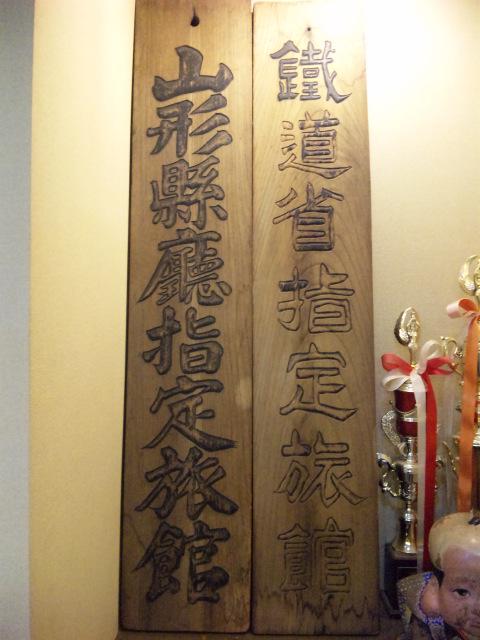 鐵道省指定旅館
山形縣廳指定旅館